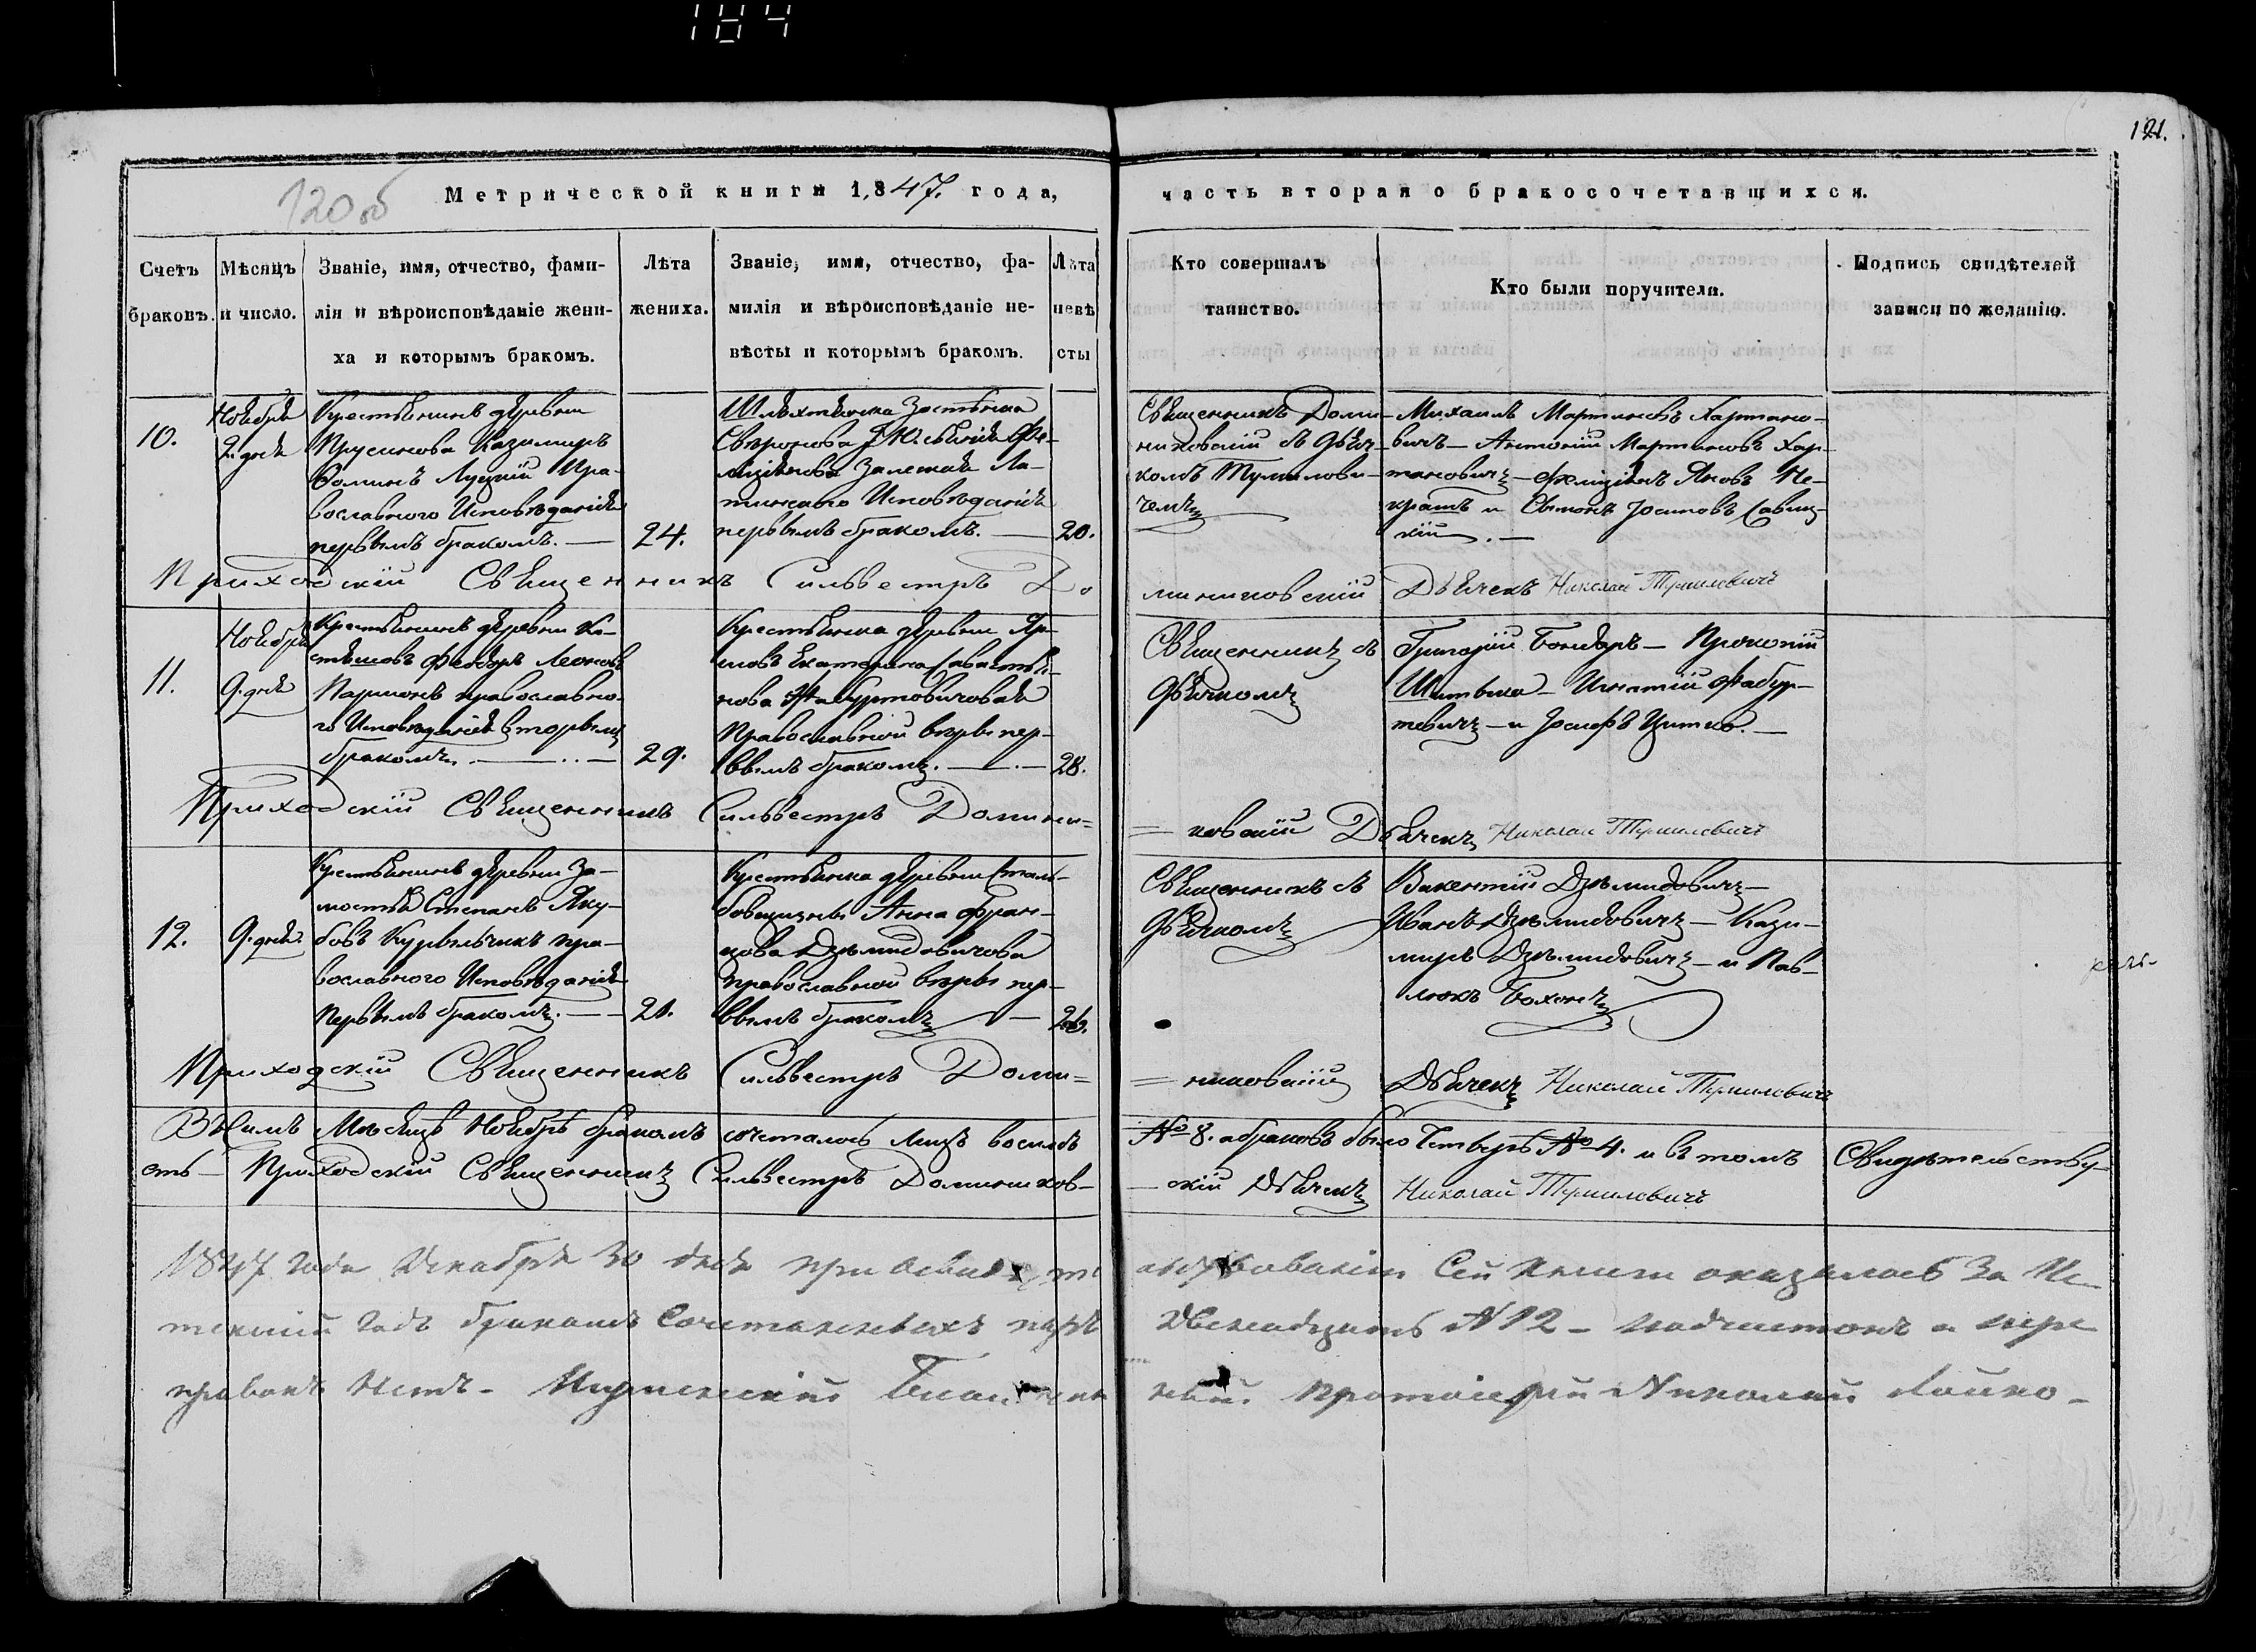 184
121.
120 об
Метрической книги 1,847. года,
часть вторая о бракосочетавшихся.
Счетъ браковъ.
Мѣсяцъ и число.
Званіе, имя, отчество, фами-
лія и вѣроисповѣданіе жени-
ха и которымъ бракомъ.
Лѣта
жениха.
Званіе, имя, отчество, фа-
милія и вѣроисповѣданіе не-
вѣсты и которымъ бракомъ.
Лѣта
невѣ
сты
Кто совершалъ
таинство.
Кто были поручители.
Подпись свидѣтелей
записи по желанію.
10.
Ноября
2. дня
Крестьянинъ деревни
Прусинова Казимиръ
Фоминъ Луцкій Пра-
вославного Исповѣданія
первымъ бракомъ. —
24.
Шляхтянка Застѣнка
Сверонова Юлія Фе-
лиціянова Залеская Ла-
тинского Исповѣданія
первымъ бракомъ. —
20.
Священникъ Доми-
никовскій съ Дьяч-
комъ Турмилови-
чемъ
Михаилъ Мартиновъ Хартано-
вичъ — Антоній Мартиновъ Хар-
тановичъ — Фелиціянъ Яковъ Не-
крашъ и Сымонъ Іосиповъ Савиц-
кій. —
Приходскій Священникъ Сильвестръ До
миниковскій Дьячекъ Николай Турмиловичъ
11.
Ноября
9. дня
Крестьянинъ деревни
Феодоръ Леоновъ
православно-
го Исповѣданія вторымъ
бракомъ. —
29.
Крестьянка деревни
Екатерина
Православной вѣры пер-
вымъ бракомъ. —
28.
Священникъ съ
Дьячкомъ
Григорій Бондарь — Прокопій
Шитька — Игнатій Фабур-
тевичъ — и Іосифъ Цитко. —
Приходскій Священникъ Сильвестръ Домини=
= ковскій Дьячекъ Николай Турмиловичъ
12.
9. дня
Крестьянинъ деревни За-
мостья Степанъ Яку-
бовъ Курыльчикъ пра-
вославного Исповѣданія
Первымъ бракомъ. —
21.
Крестьянка деревни Столь-
бовщизны Анна Фран-
цова Дземидовичова
Православной вѣры пер-
вымъ бракомъ —
26.
Священникъ съ
Дьячкомъ
Викентій Дземидовичъ —
Иванъ Дземидовичъ — Кази-
миръ Дземидовичъ — и Пав-
люкъ Бохонъ
Приходскій Священникъ Сильвестръ Доми=
= никовскій Дьячекъ Николай Турмиловичъ
Въ Симъ Мѣсяцѣ Ноябрѣ бракомъ сочеталось Лицъ восемь № 8. а браковъ было Четыре № 4. и въ томъ Свидѣтельству-
етъ — Приходскій Священникъ Сильвестръ Домиников-
— скій Дьячекъ Николай Турмиловичъ
1847 года Декабря 30 дня при освидѣтельствованіи Сей Книги оказалось За Ис-
текшій Годъ бракомъ Сочетанныхъ паръ Двенадцать № 12 — подчистокъ и пере
правокъ нѣтъ — Благочин
ный Протоіерей Николай